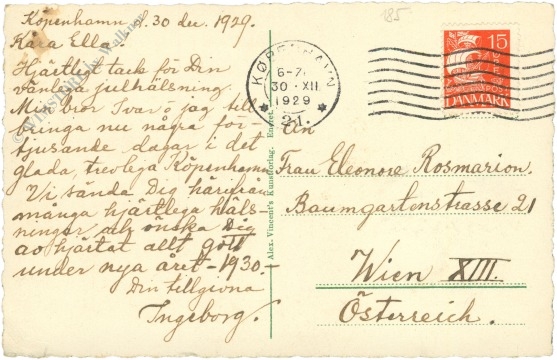 Köpenhamn d. 30 dec. 1929.
Kära Ella
Hjärtligt tack för Din
vänliga julhälsning.
Min bror Ivar o jag till-
bringa nu några för-
tjusande dagar i det
glada, trevliga Köpenhamn
Vi sända Dig härifrån
många hjärtliga häls-
ningar och önska Dig
av hjärtat allt gott
under nya året - 1930.-
Din tillgivna
Ingeborg.
Alex. Vincent's Kunstforlag. Eneret.
185
KØBENHAVN
6-7
30·XII
1929
21.
15
DANMARK
An
Frau Eleonore Rosmarion.
Baumgartenstrasse 21
Wien XIII.
Österreich.